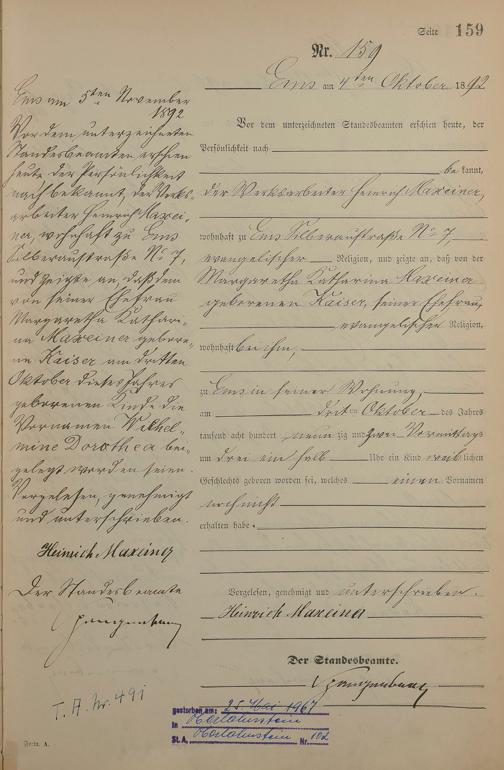 Seite 159
Nr. 159
Ems am 4ten Oktober 1892
Vor dem unterzeichneten Standesbeamten erschien heute, der
Persönlichkeit nach
bekannt,
der Werksarbeiter Heinrich Maxeiner,
wohnhaft zu Ems Silberaustraße No 7,
evangelischer Religion, und zeigte an, daß von der
Margaretha Katharina Maxeiner
geborenen Kaiser, seiner Ehefrau,
evangelischer Religion,
wohnhaft bei ihm,
zu Ems in seiner Wohnung,
am dritten Oktober des Jahres
tausend acht hundert neunzig und zwei Vormittags
um drei ein halb Uhr ein Kind weiblichen
Geschlechts geboren worden sei, welches einen Vornamen
noch nicht
erhalten habe.
Vorgelesen, genehmigt und unterschrieben.
Heinrich Maxeiner
Der Standesbeamte.
Ems am 5ten November
1892
Vor dem unterzeichneten
Standesbeamten erschien
heute der Persönlichkeit
nach bekannt, der Werks-
arbeiter Heinrich Maxei-
ner, wohnhaft zu Ems
Silberaustraße No 7,
und zeigte an, daß dem
von seiner Ehefrau
Margaretha Kathari-
na Maxeiner gebore-
ne Kaiser am dritten
Oktober dieses Jahres
geborenen Kinde die
Vornamen Wilhel-
mine Dorothea bei-
gelegt worden seien.
Vorgelesen, genehmigt
und unterschrieben.
Heinrich Maxeiner
Der Standesbeamte
T. A. Nr. 491
gestorben am: 25. Mai 1967
in
St.A. Nr. 102
Form. A.